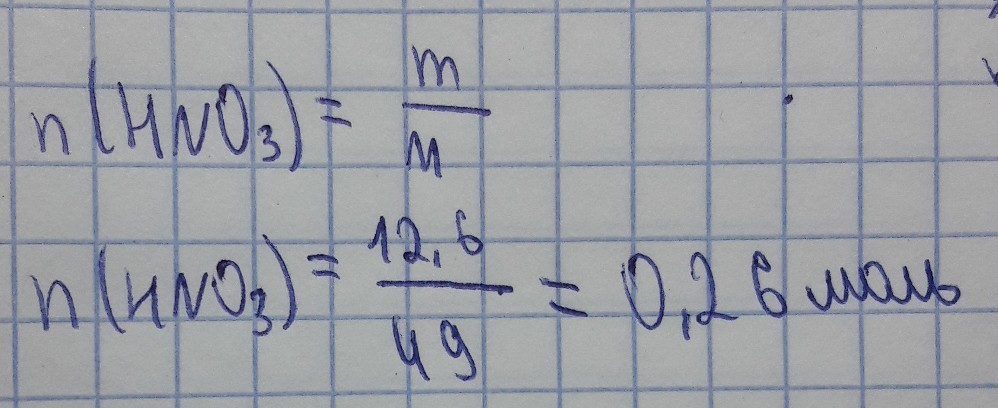 n(HNO₃) = m/M
n(HNO₃) = 12,6/49 = 0,26 моль